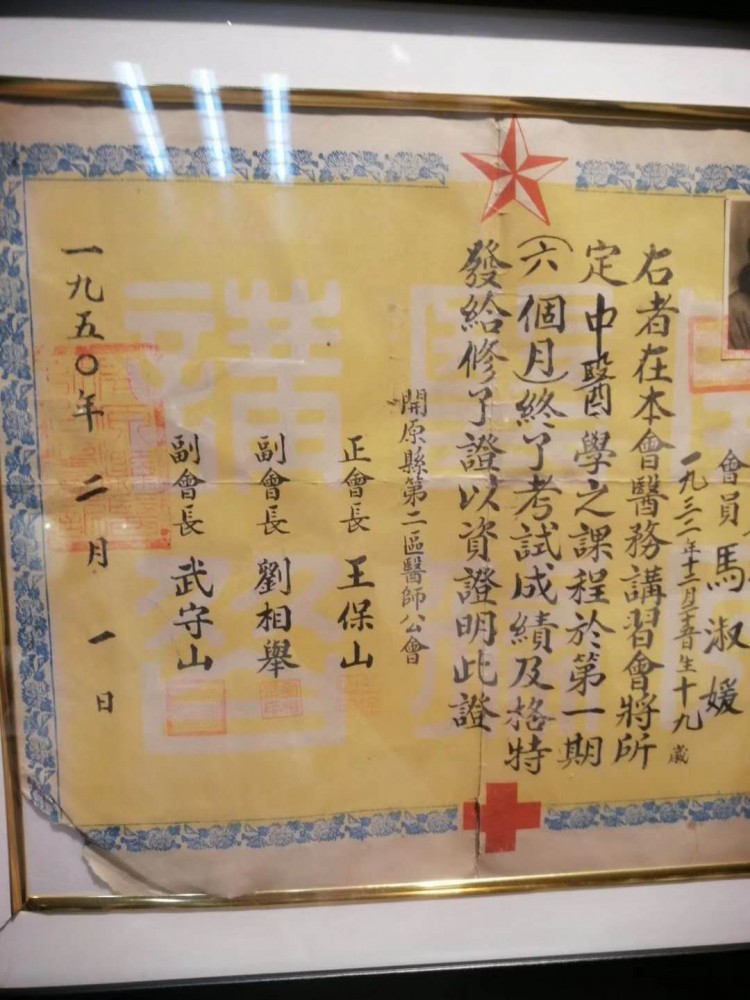 會員 馬淑媛
一九三二年十二月生十九歲
右者在本會醫務講習會將所
定中醫學之課程於第一期
(六個月)終了考試成績及格特
發給修了證以資證明此證
開原縣第二區醫師公會
正會長 王保山
副會長 劉相舉
副會長 武守山
一九五〇年二月一日